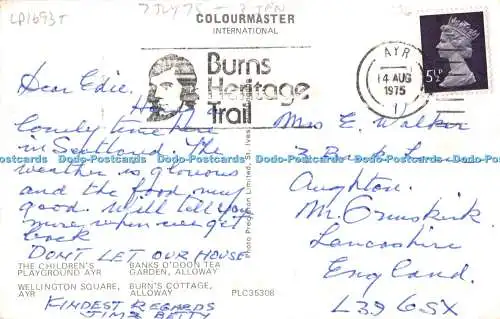 LP1693T
7 JULY 75 -
COLOURMASTER
INTERNATIONAL
Burns
Heritage
Trail
AYR
14 AUG
1975
5½P
Dear Edie.
Having a
lovely time here
in Scotland. The
weather is glorious
and the food very
good. Will tell you
more when we get
back
DON'T LET OUR HOUSE
KINDEST REGARDS
JIM & BETTY
Mrs E. Walker
3
Aughton.
Nr. Ormskirk.
Lancashire
England.
L39 6SX
Dodo-Postcards Dodo-Postcards Dodo-Postcards Dodo-Postcards
Photo Precision Limited, St. Ives
THE CHILDREN'S
PLAYGROUND AYR
BANKS O'DOON TEA
GARDEN, ALLOWAY
WELLINGTON SQUARE,
AYR
BURN'S COTTAGE,
ALLOWAY
PLC35308